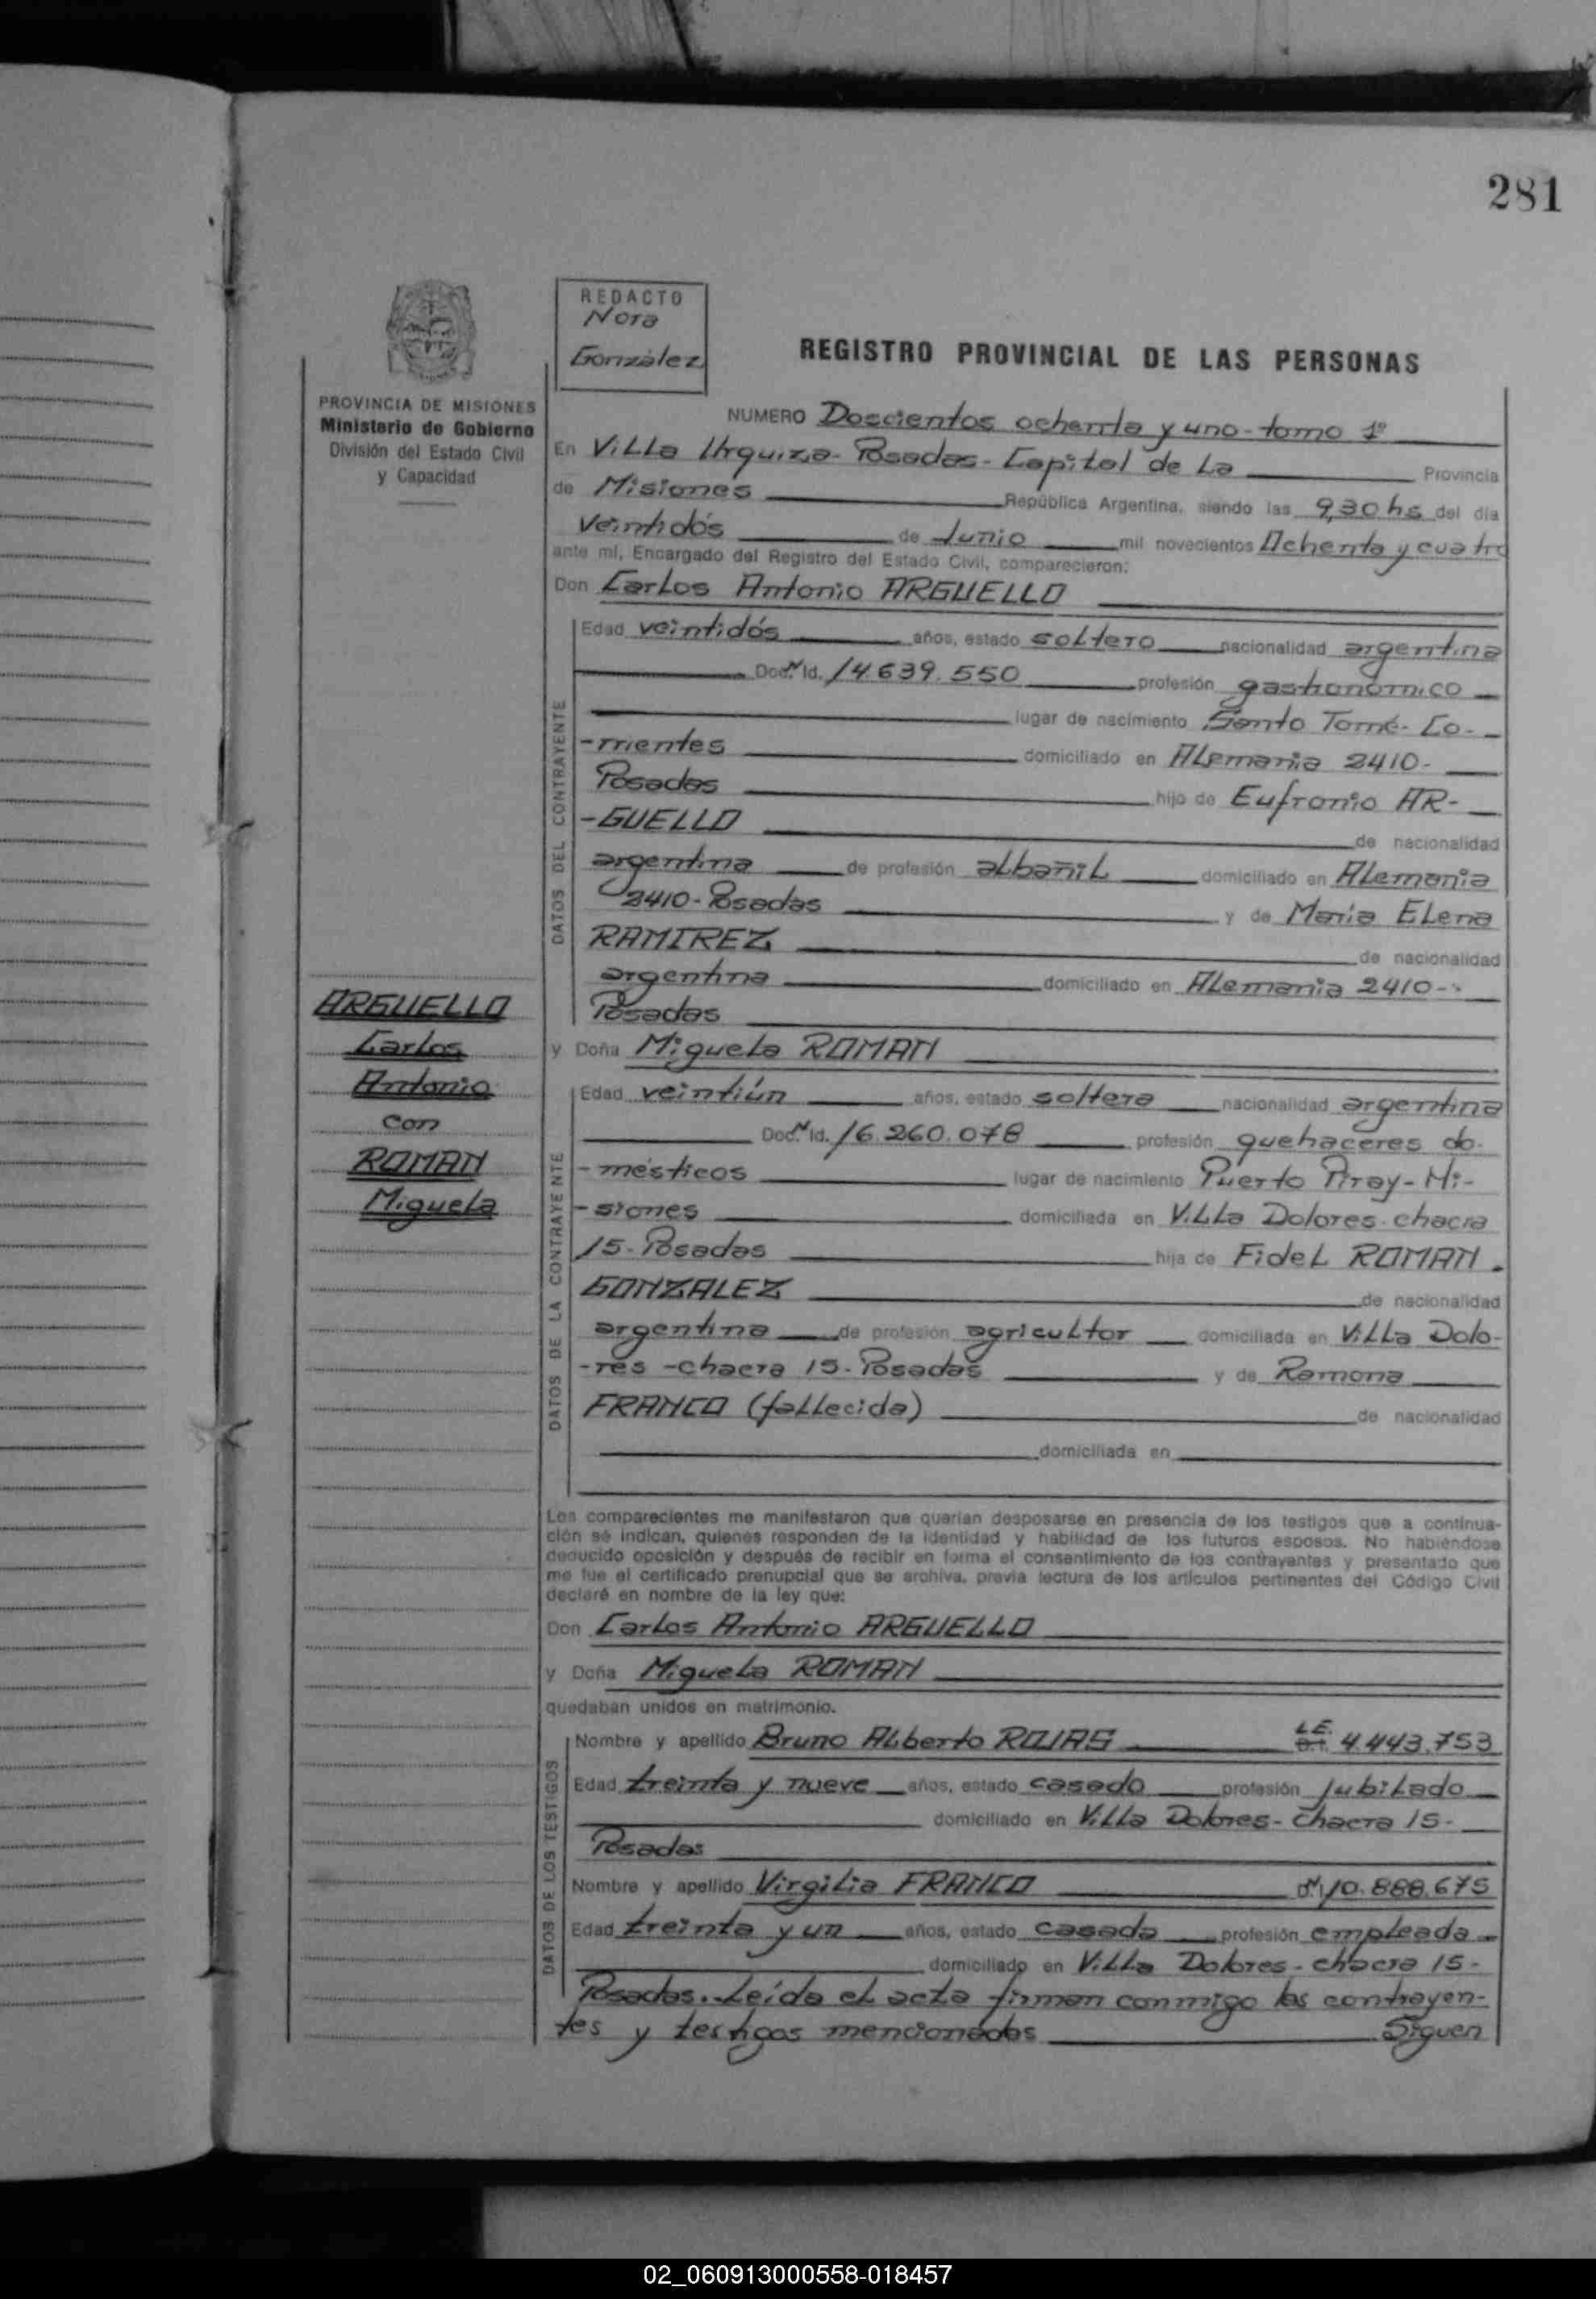 281
REDACTO
Nora
González
REGISTRO PROVINCIAL DE LAS PERSONAS
PROVINCIA DE MISIONES
Ministerio de Gobierno
División del Estado Civil
y Capacidad
NUMERO Doscientos ochenta y uno - tomo 1º
En Villa Urquiza - Posadas - Capital de La Provincia
de Misiones República Argentina, siendo las 9,30 hs del día
Veintidós de Junio mil novecientos Ochenta y cuatro
ante mí, Encargado del Registro del Estado Civil, comparecieron:
Don Carlos Antonio ARGUELLO
DATOS DEL CONTRAYENTE
Edad veintidós años, estado soltero nacionalidad argentina
Doc. Id. 14.639.550 profesión gastronómico
lugar de nacimiento Santo Tomé - Co-
-rrientes domiciliado en Alemania 2410-
Posadas hijo de Eufronio AR-
-GUELLO de nacionalidad
argentina de profesión albañil domiciliado en Alemania
2410 - Posadas y de María Elena
RAMIREZ de nacionalidad
argentina domiciliado en Alemania 2410 --
Posadas
y Doña Miguela ROMAN
ARGUELLO
Carlos
Antonio
con
ROMAN
Miguela
DATOS DE LA CONTRAYENTE
Edad veintiún años, estado soltera nacionalidad argentina
Doc. Id. 16.260.078 profesión quehaceres do-
-mésticos lugar de nacimiento Puerto Piray - Mi-
-siones domiciliada en Villa Dolores - chacra
15 - Posadas hija de Fidel ROMAN -
GONZALEZ de nacionalidad
argentina de profesión agricultor domiciliada en Villa Dolo-
-res - chacra 15 - Posadas y de Ramona
FRANCO (fallecida) de nacionalidad
domiciliada en
Los comparecientes me manifestaron que querían desposarse en presencia de los testigos que a continua-
ción se indican, quienes responden de la identidad y habilidad de los futuros esposos. No habiéndose
deducido oposición y después de recibir en forma el consentimiento de los contrayentes y presentado que
me fue el certificado prenupcial que se archiva, previa lectura de los artículos pertinentes del Código Civil
declaré en nombre de la ley que:
Don Carlos Antonio ARGUELLO
y Doña Miguela ROMAN
quedaban unidos en matrimonio.
DATOS DE LOS TESTIGOS
Nombre y apellido Bruno Alberto ROJAS L.E. D.I. 4.443.753
Edad treinta y nueve años, estado casado profesión Jubilado
domiciliado en Villa Dolores - chacra 15 -
Posadas
Nombre y apellido Virgilia FRANCO 10.888.675
Edad treinta y un años, estado casada profesión empleada
domiciliado en Villa Dolores - chacra 15 -
Posadas. Leída el acta firman conmigo los contrayen-
tes y testigos mencionados Siguen
02_060913000558-018457